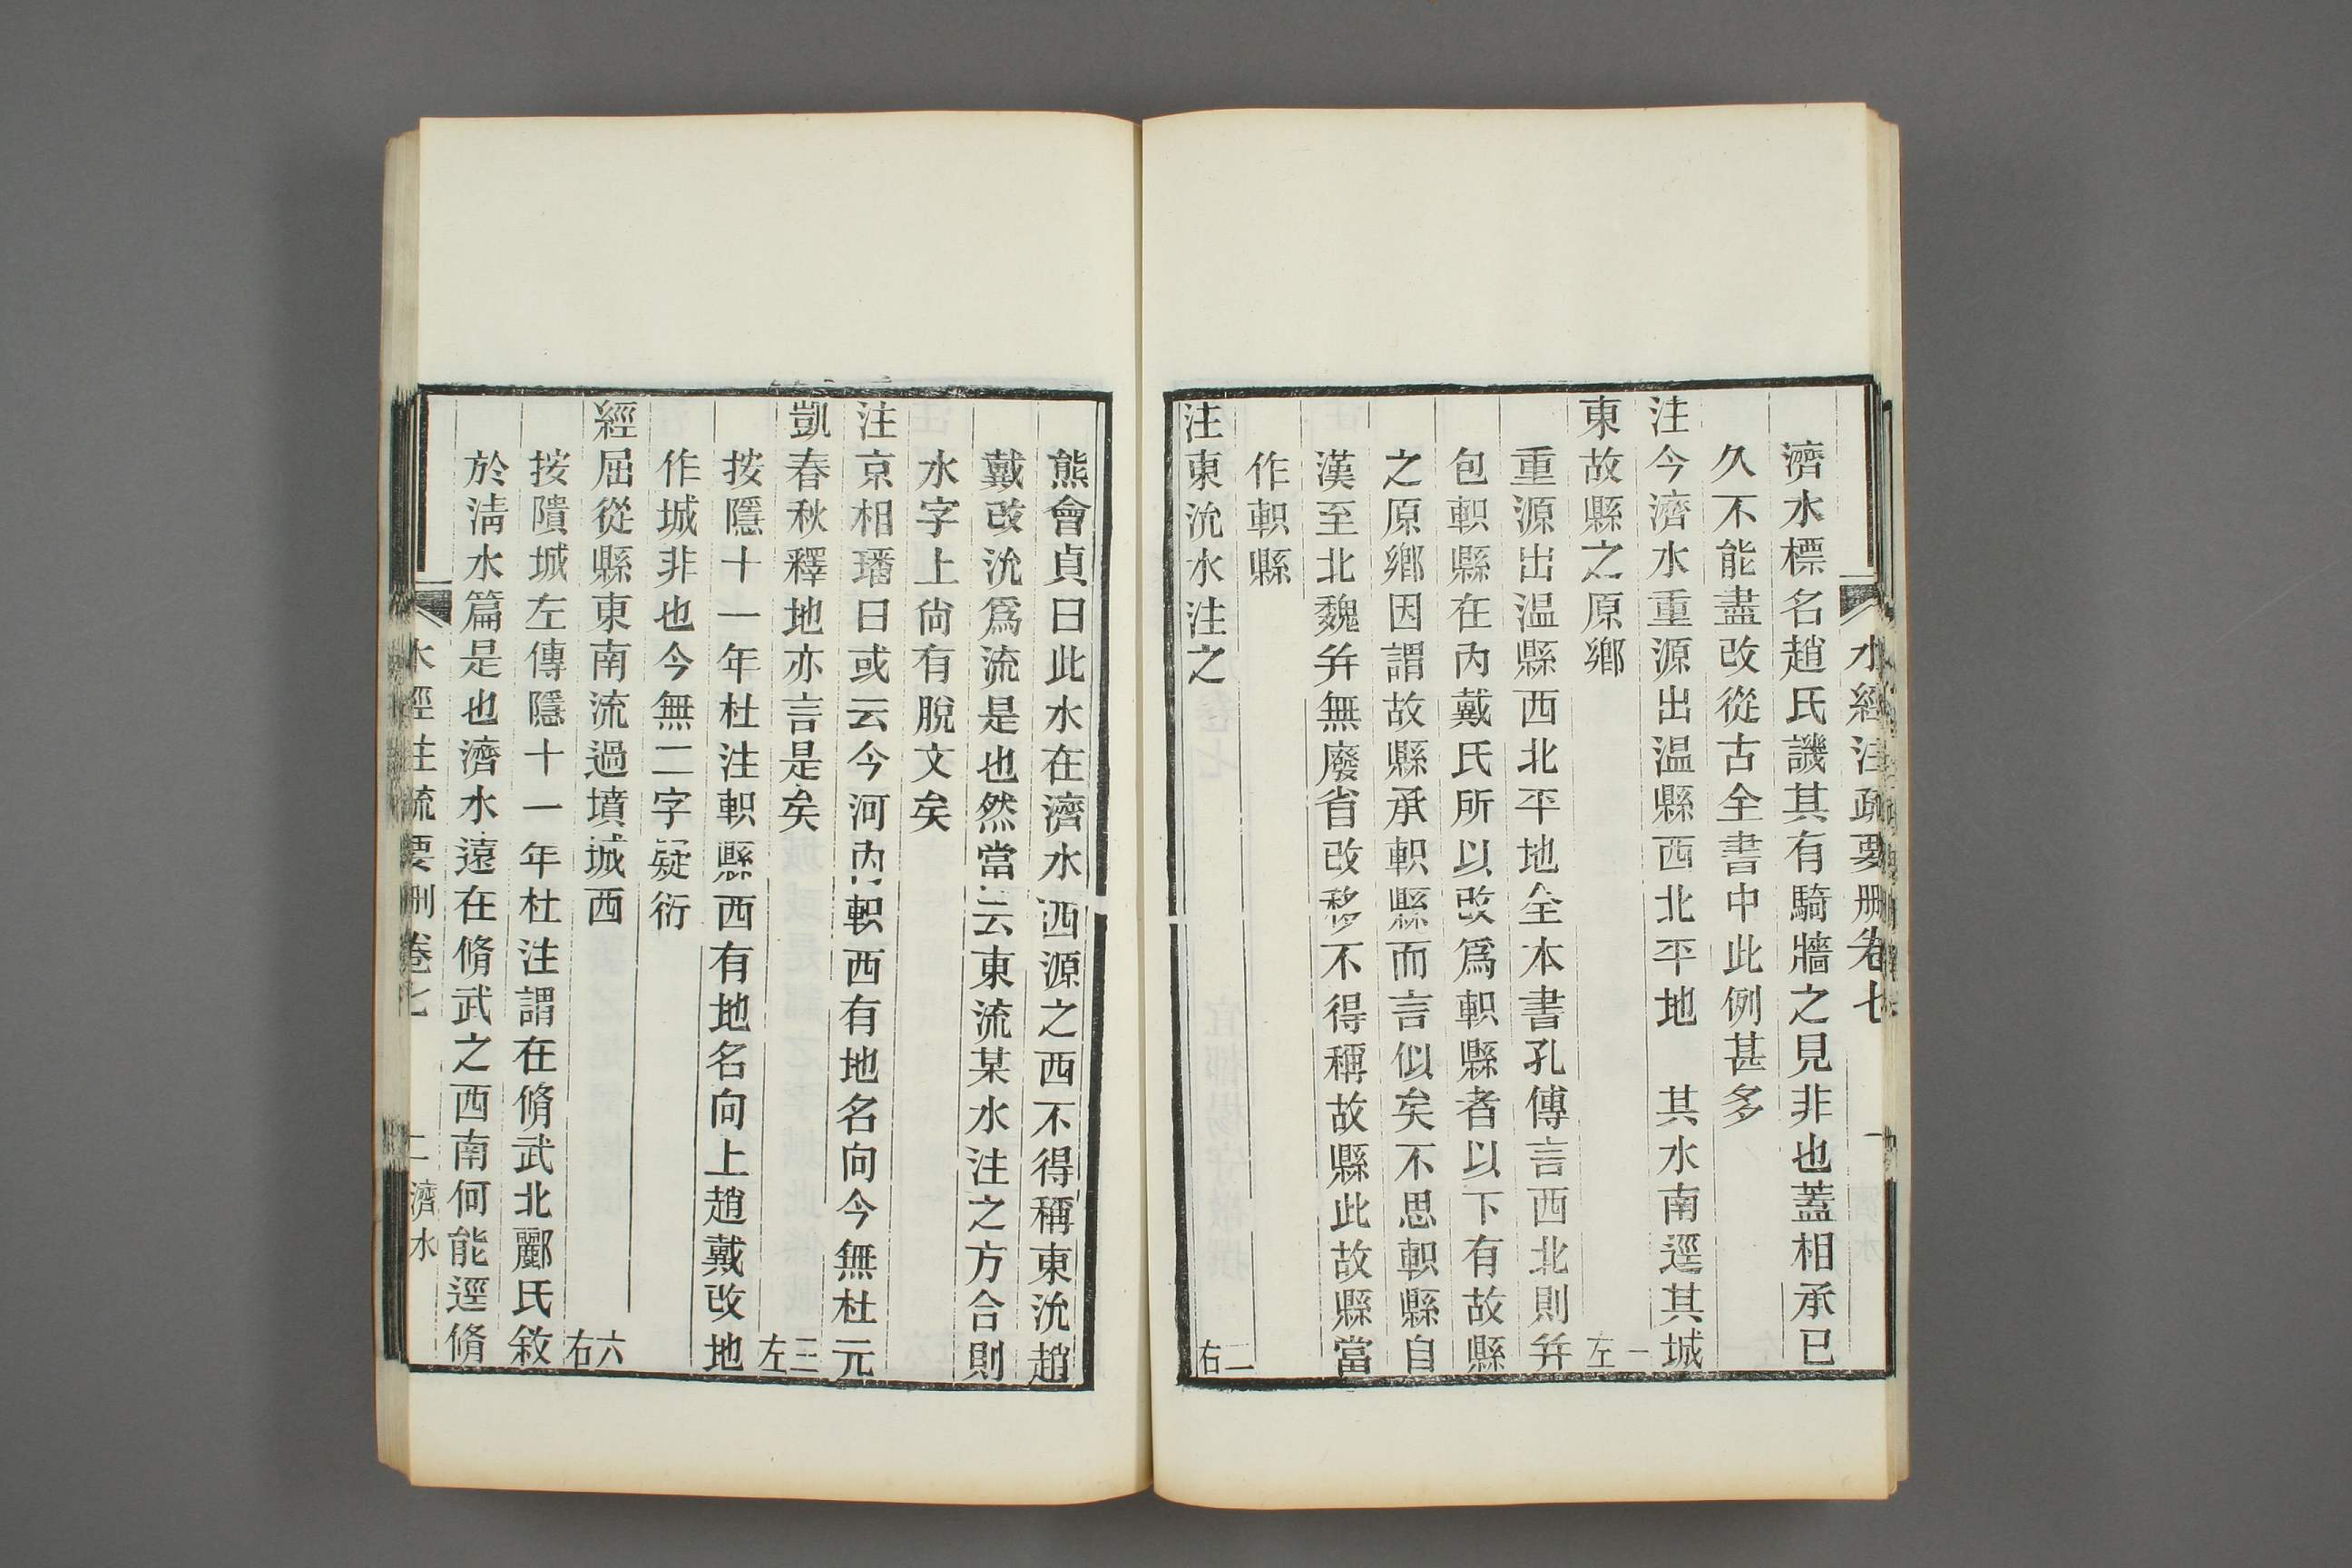 水經注疏要删卷七 一
濟水標名趙氏譏其有騎牆之見非也蓋相承已
久不能盡改從古全書中此例甚多
注今濟水重源出温縣西北平地 其水南逕其城
東故縣之原鄉 一左
重源出温縣西北平地全本書孔傳言西北則幷
包軹縣在内戴氏所以改爲軹縣者以下有故縣
之原鄉因謂故縣承軹縣而言似矣不思軹縣自
漢至北魏幷無廢省改移不得稱故縣此故縣當
作軹縣
注東沇水注之 二右
熊會貞曰此水在濟水西源之西不得稱東沇趙
戴改沇爲流是也然當云東流某水注之方合則
水字上尙有脫文矣
注京相璠曰或云今河内軹西有地名向今無杜元
凱春秋釋地亦言是矣 三左
按隱十一年杜注軹縣西有地名向上趙戴改地
作城非也今無二字疑衍
經屈從縣東南流過墳城西 六右
按隤城左傳隱十一年杜注謂在脩武北酈氏敘
於淸水篇是也濟水遠在脩武之西南何能逕脩
水經注疏要删卷七 二 濟水